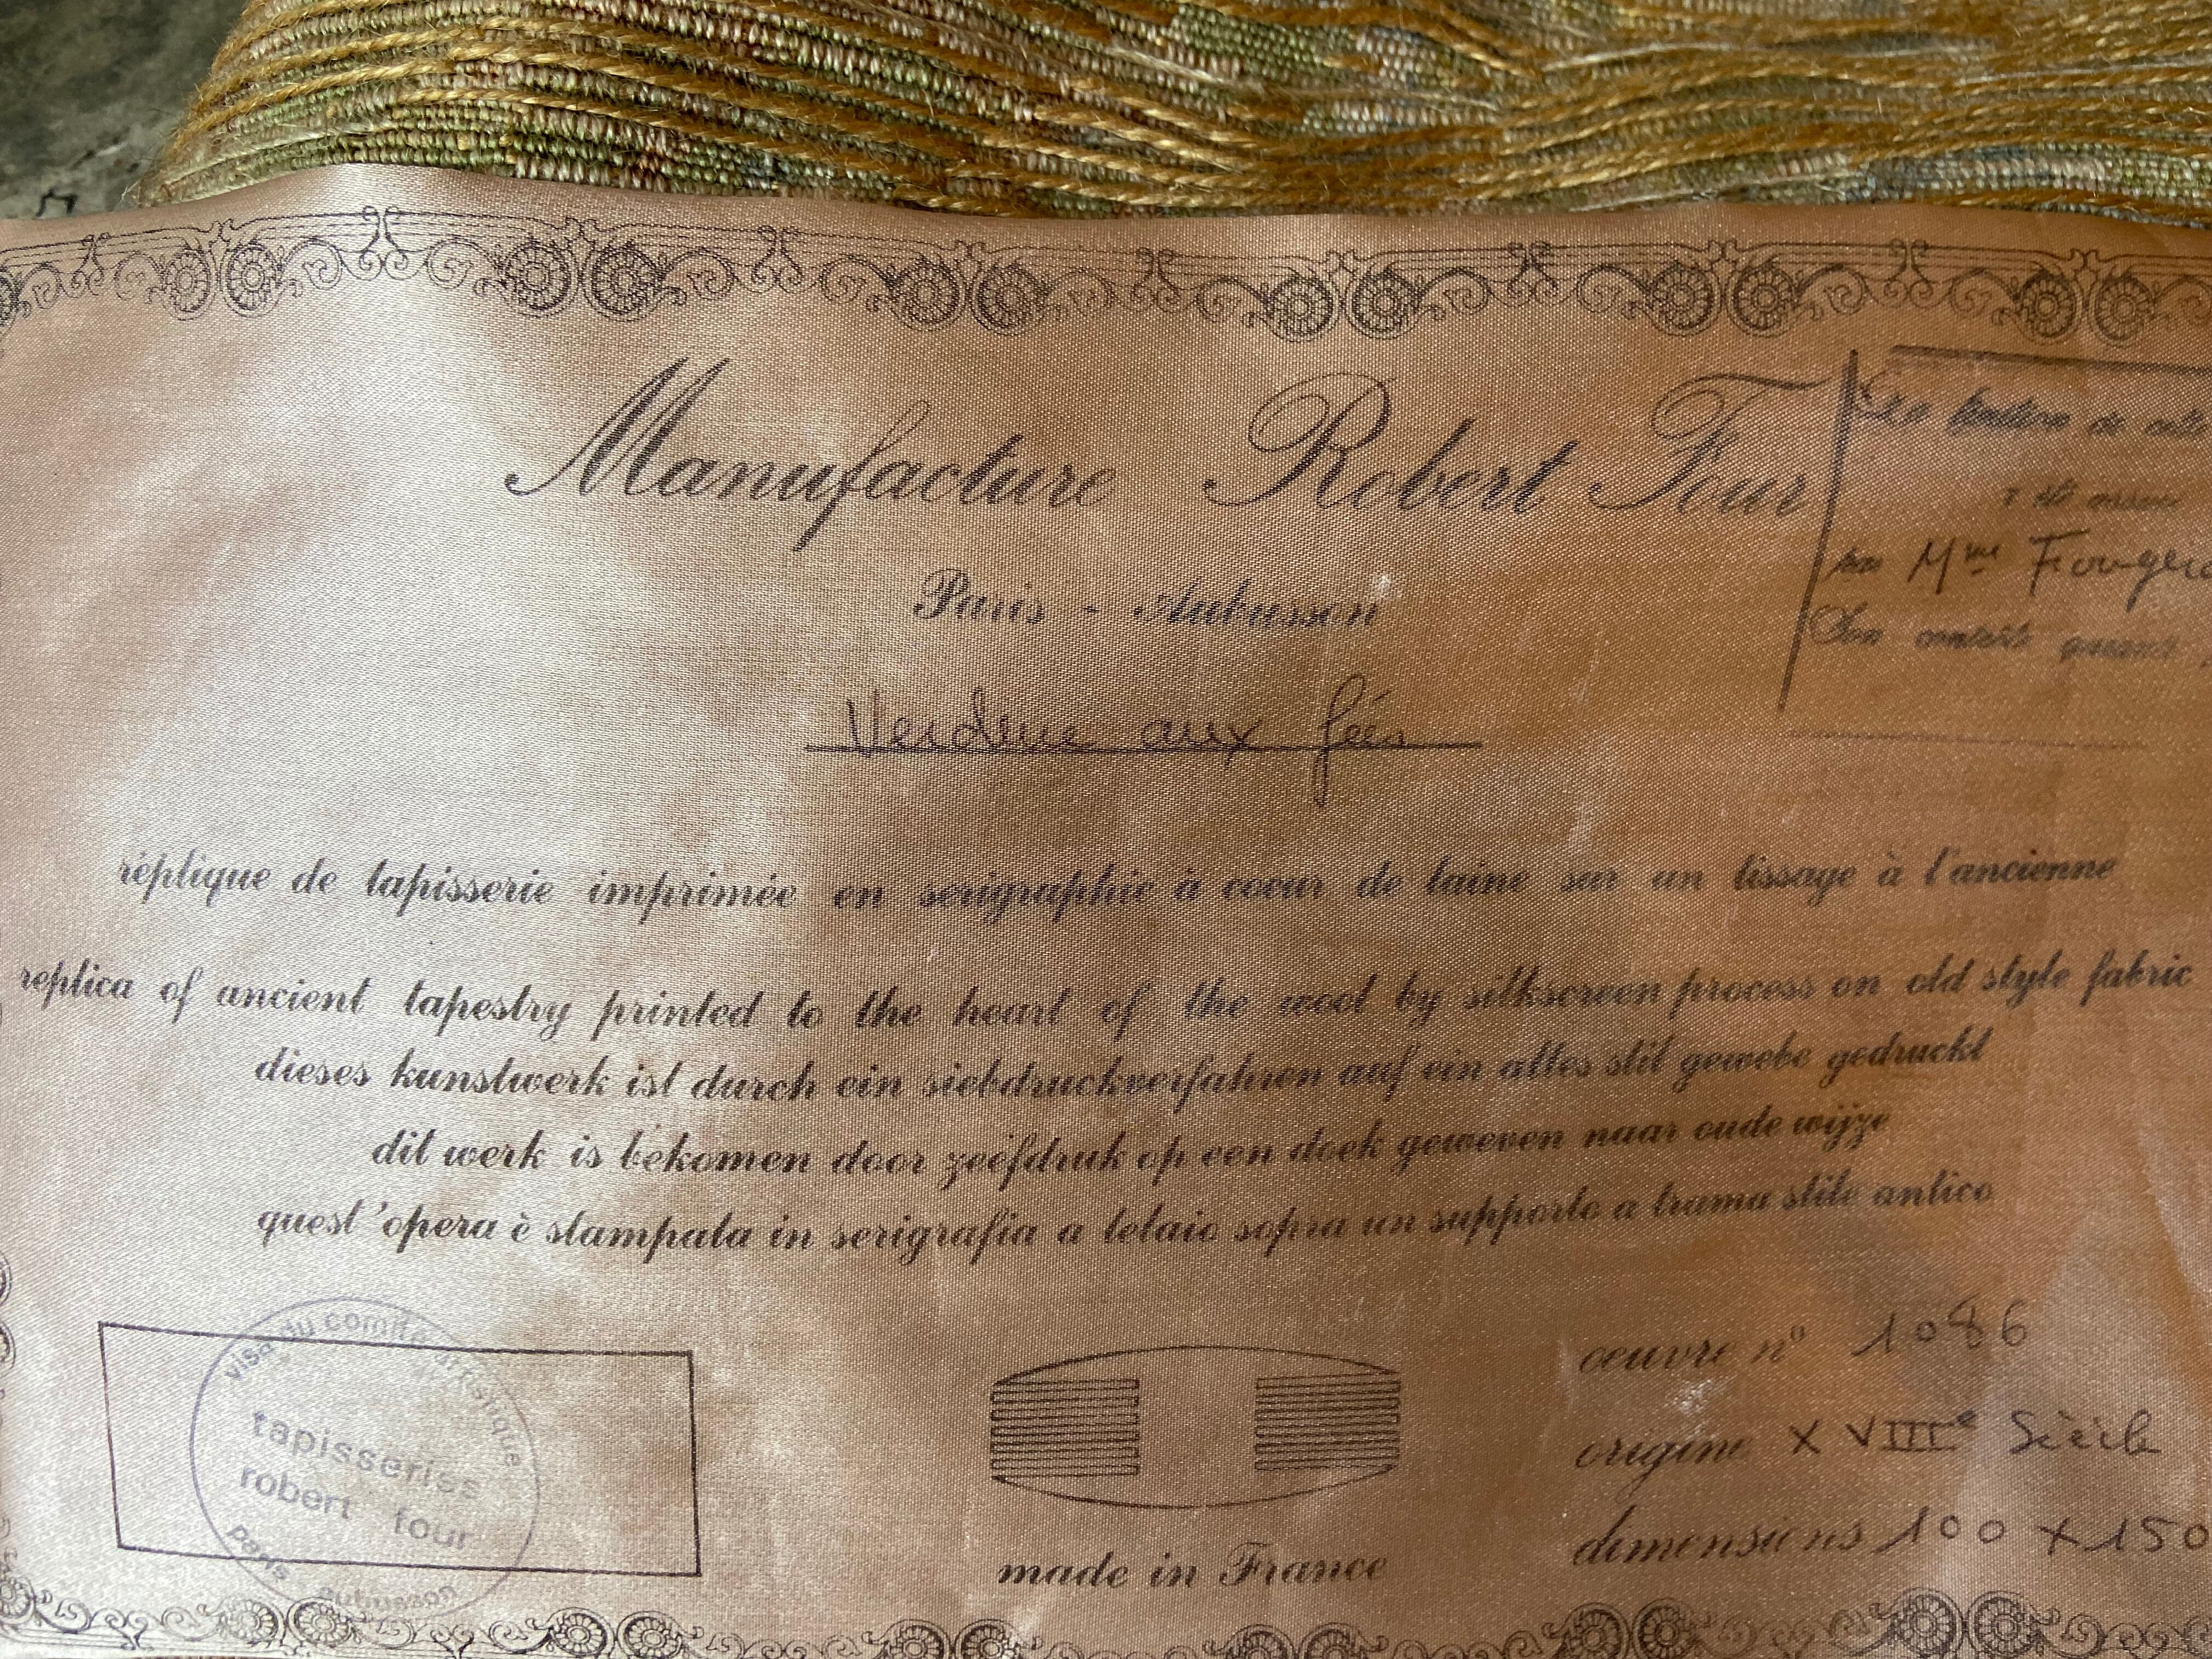 Manufacture Robert Four
Paris - Aubusson
Verdure aux fées
par Mme
réplique de tapisserie imprimée en serigraphie à coeur de laine sur un tissage à l'ancienne
replica of ancient tapestry printed to the heart of the wool by silkscreen process on old style fabric
dieses kunstwerk ist durch ein siebdruckverfahren auf ein altes stil gewebe gedruckt
dit werk is bekomen door zeefdruk op een doek geweven naar oude wijze
quest'opera è stampata in serigrafia a telaio sopra un supporto a trama stile antico
visa du comité artistique
tapisseries
robert four
paris - aubusson
made in France
oeuvre nº 1086
origine XVIIIe Siècle
dimensions 100 x 150